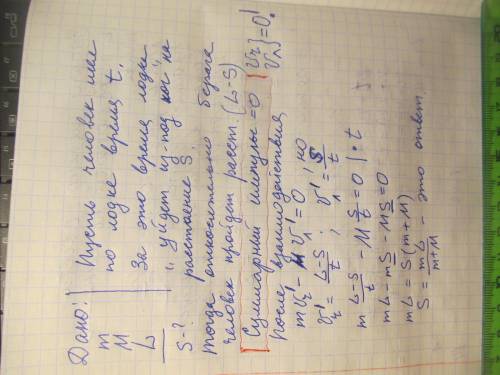 Дано:
m
M
L
S-?
Пусть человек шел
по лодке время t.
За это время лодка
"уйдет из-под ног" на
расстояние S.
Тогда относительно берега
человек пройдет расст. (L-S)
Суммарный импульс =0 } Vч } =0!
Vл }
После взаимодействия
mVч' - MVл' = 0, но
Vч' = L-S/t ; Vл' = S/t
m L-S/t - M S/t = 0 | · t
mL - mS - MS = 0
mL = S(m+M)
S = mL/m+M - это ответ.